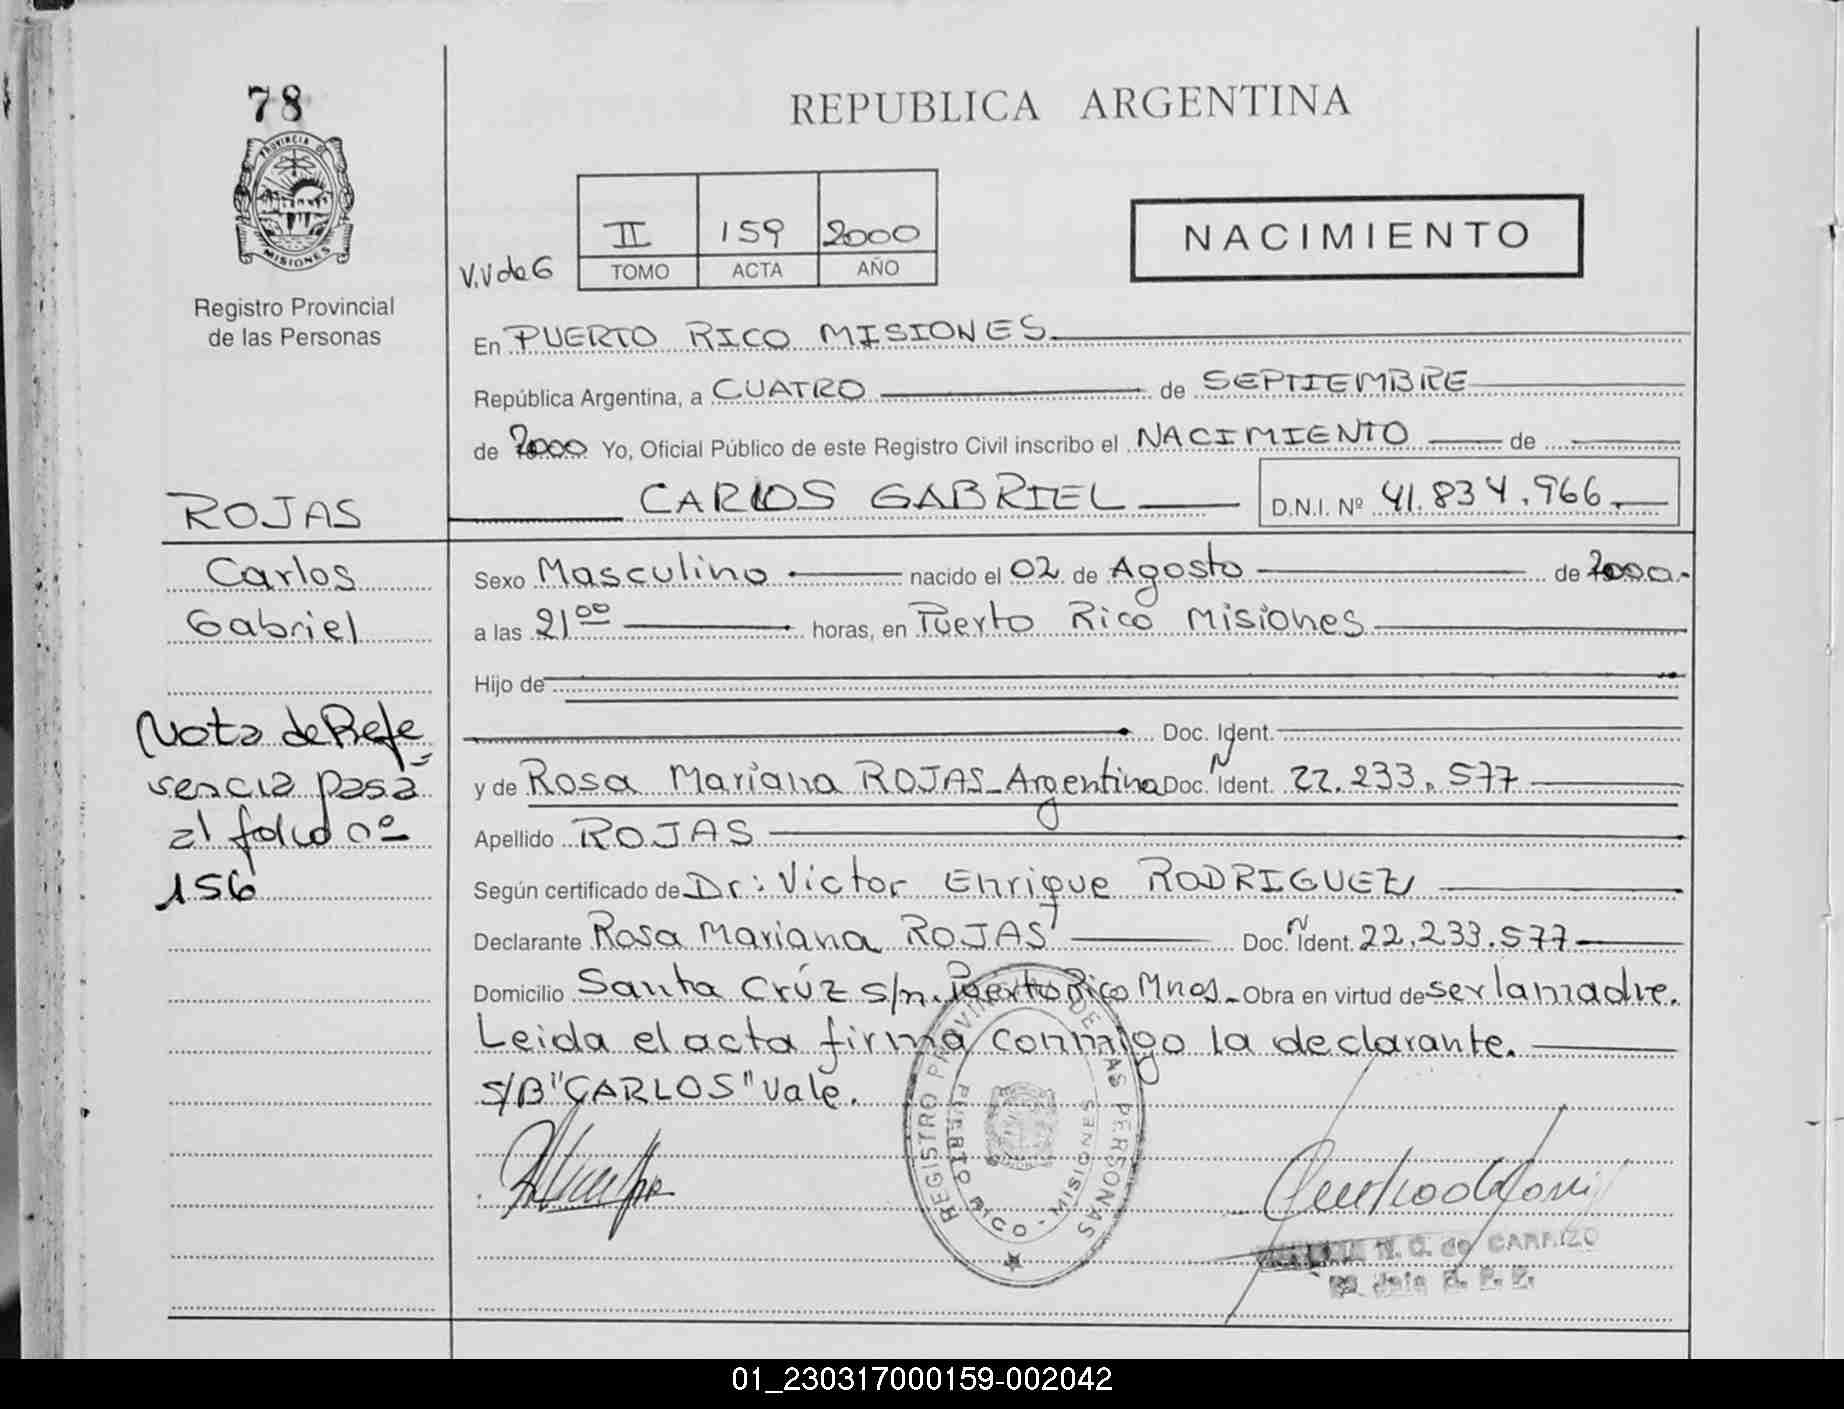 78
REPUBLICA ARGENTINA
PROVINCIA D
MISIONES
Registro Provincial
de las Personas
II 159 2000
TOMO ACTA AÑO
NACIMIENTO
En PUERTO RICO MISIONES
República Argentina, a CUATRO de SEPTIEMBRE
de 2000 Yo, Oficial Público de este Registro Civil inscribo el NACIMIENTO de
CARLOS GABRIEL D.N.I. Nº 41.834.966.
ROJAS
Carlos
Gabriel
Nota de Refe
rencia pasa
al folio nº
156
Sexo Masculino nacido el 02 de Agosto de 2000.
a las 21 00 horas, en Puerto Rico Misiones
Hijo de
Doc. Ident.
y de Rosa Mariana ROJAS - Argentina Doc. N Ident. 22.233.577
Apellido ROJAS
Según certificado de Dr: Victor Enrique RODRIGUEZ
Declarante Rosa Mariana ROJAS Doc. N Ident. 22.233.577
Domicilio Santa Crúz s/n. Puerto Rico Mnes. Obra en virtud de ser la madre.
Leida el acta firma conmigo la declarante.
S/B "CARLOS" Vale.
REGISTRO PROVINCIAL DE LAS PERSONAS
PUERTO RICO - MISIONES
N. G. de CARRIZO
R. P. P.
01_230317000159-002042